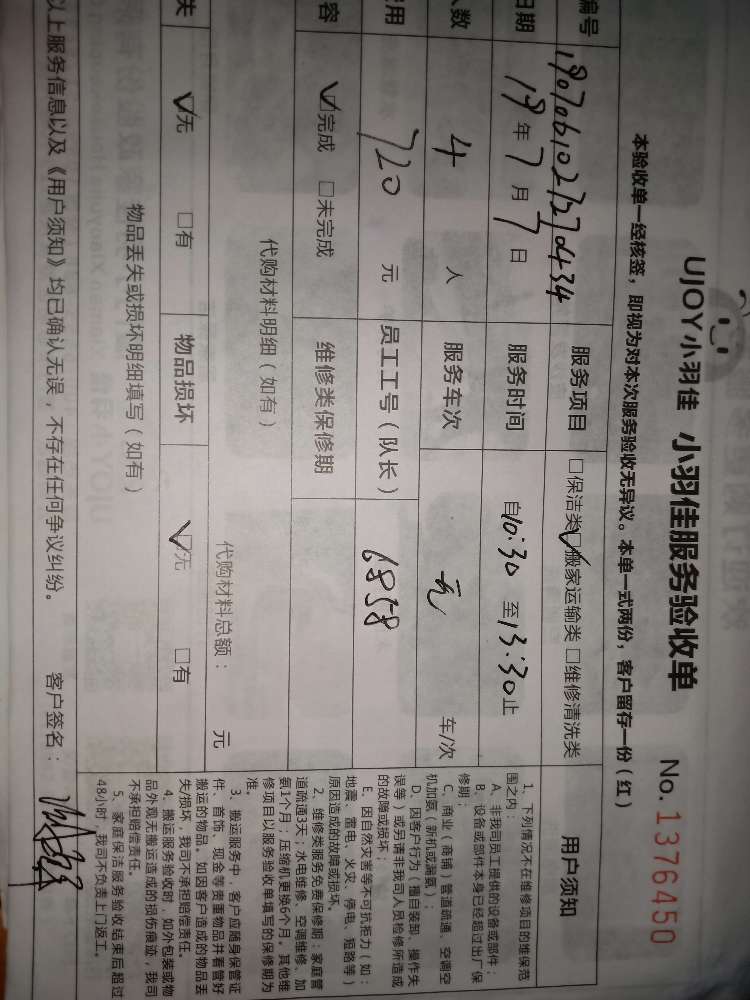 UJOY小羽佳 小羽佳服务验收单 No. 1376450
本验收单一经核签，即视为对本次服务验收无异议。本单一式两份，客户留存一份（红）
编号 1907061027270434 服务项目 □保洁类☑搬家运输类 □维修清洗类
日期 19年7月7日 服务时间 自10:30至13:30止
人数 4 人 服务车次 车/次
用 720 元 员工工号（队长） 6858
容 ☑完成 □未完成 维修类保修期
代购材料明细（如有） 代购材料总额： 元
失 ☑无 □有 物品损坏 ☑无 □有
物品丢失或损坏明细填写（如有）
以上服务信息以及《用户须知》均已确认无误，不存在任何争议纠纷。 客户签名：
用户须知
1、下列情况不在维修项目的维保范
围之内：
A、非我司员工提供的设备或部件；
B、设备或部件本身已经超过出厂保
修期；
C、商业（商铺）管道疏通、空调空
机加氨（新机或漏氨）；
D、因客户行为（擅自装卸、操作失
误等）或另请非我司人员检修所造成
的故障或损坏；
E、因自然灾害等不可抗拒力（如：
地震、雷电、火灾、停电、短路等）
原因造成的故障或损坏。
2、维修类服务免费保修期：家庭管
道疏通3天；水电维修、空调维修、加
氨1个月；压缩机更换6个月。其他维
修项目以服务验收单填写的保修期为
准。
3、搬运服务中，客户应随身保管证
件、首饰、现金等贵重物品并看管好
搬运的物品。如因客户造成的物品丢
失/损坏，我司不承担赔偿责任。
4、搬运服务验收时，如外包装或物
品外观无搬运造成的损伤痕迹，我司
不承担赔偿责任。
5、家庭保洁服务验收结束后超过
48小时，我司不负责上门返工。